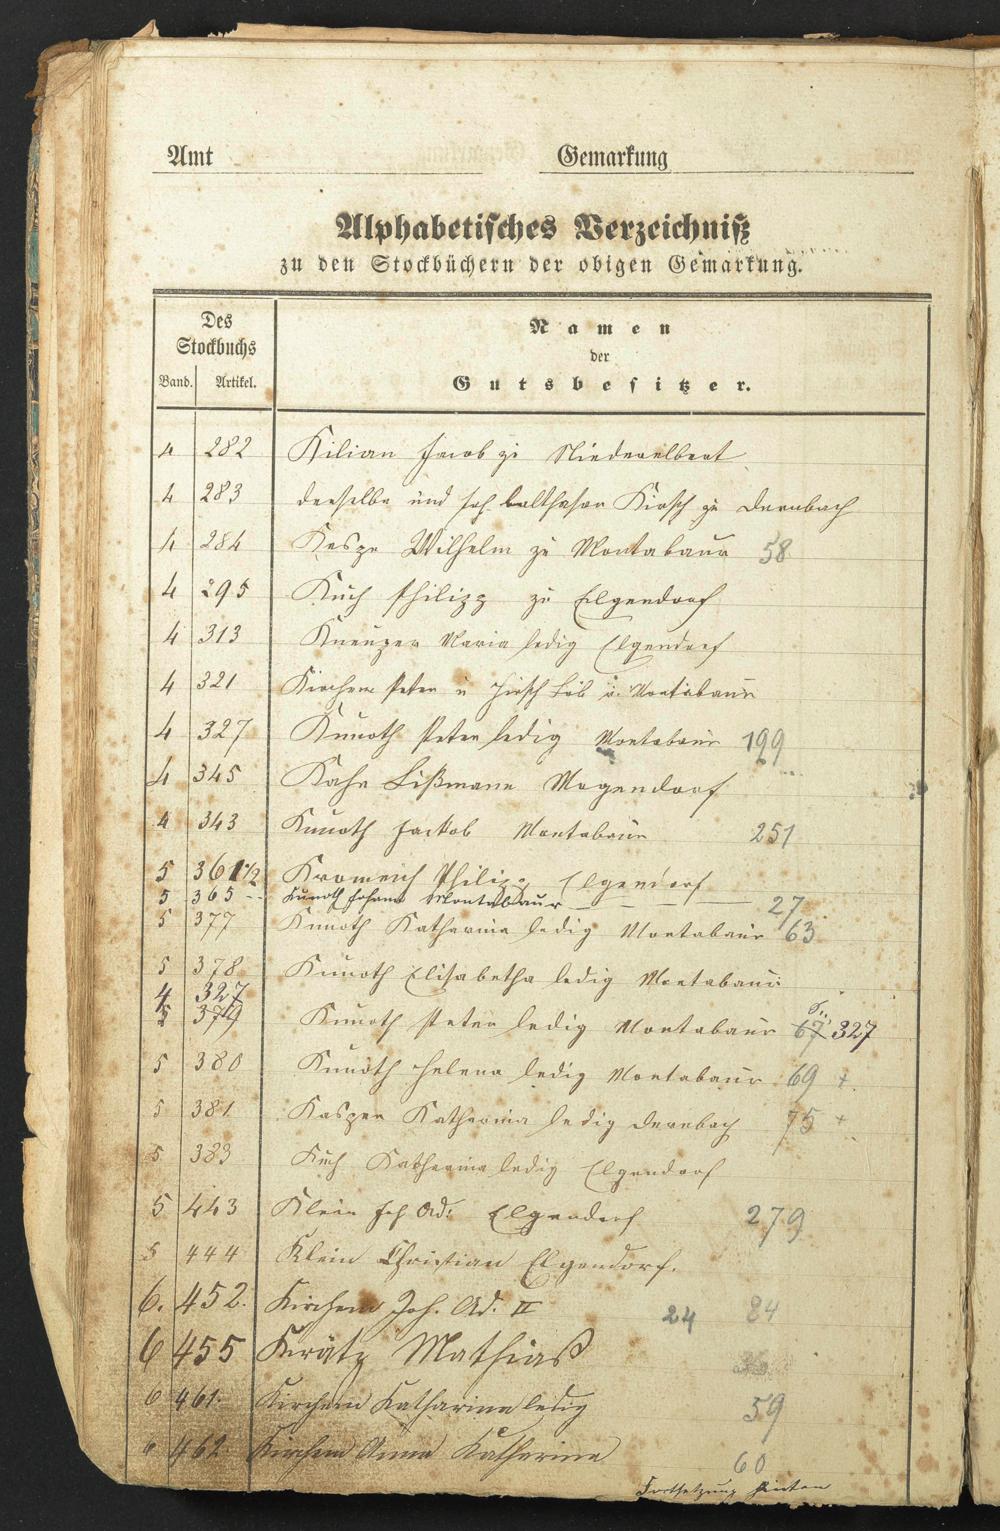 Amt Gemarkung
Alphabetisches Verzeichniß
zu den Stockbüchern der obigen Gemarkung.
Des Stockbuchs
Band. Artikel.
Namen
der
Gutsbesitzer.
4 282 Kilian Jacob zu Niederelbert
4 283 derselbe und Joh. Balthasar Kirsch zu Dernbach
4 284 Wilhelm zu Montabaur 58
4 295 Kuch Philipp zu Elgendorf
4 313 Maria ledig Elgendorf
4 321 Kirchem Peter u Hirsch Löb u. Montabaur
4 327 Knuoth Peter ledig Montabaur 199
4 345 Kahn Mogendorf
4 343 Knuoth Jackob Montabaur 251
5 361 1/2 Philipp Elgendorf
5 365 Knuoth Johann Montabaur 27
5 377 Knuoth Katharina ledig Montabaur 63
5 378 Knuoth Elisabetha ledig Montabaur
4 327
5 379 Knuoth Peter ledig Montabaur 67 327
5 380 Knuoth Helena ledig Montabaur 69 +
5 381 Kasper Katharina ledig Dernbach 75 +
5 383 Kuch Katharina ledig Elgendorf
5 443 Klein Joh Ad: Elgendorf 279
5 444 Klein Christian Elgendorf.
6. 452. Kirchem Joh. Ad. II 24 84
6 455 Mathias
6 461. Kirchem Katharina ledig 59
6 462. Kirchem Anna Katharina 60
Fortsetzung hinten